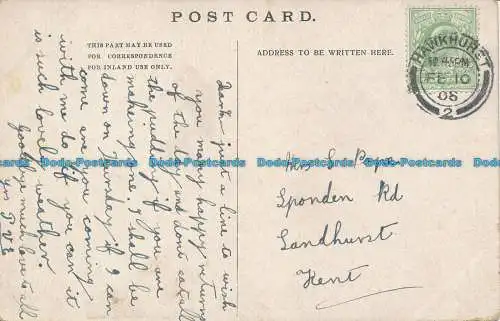 POST CARD.
THIS PART MAY BE USED
FOR CORRESPONDENCE
FOR INLAND USE ONLY.
ADDRESS TO BE WRITTEN HERE.
HAWKHURST
12.45PM
FE 10
05
2
Mrs L Pope
Sponden Rd
Sandhurst
Kent
just a line to wish
you many happy returns
of the day and dont eat all
the pudding if you are
making one. I shall be
down on Saturday if I can
come are you coming
with me do if you can it
is such lovely weather.
Goodbye much love to all
Dodo-Postcards Dodo-Postcards Dodo-Postcards Dodo-Postcards